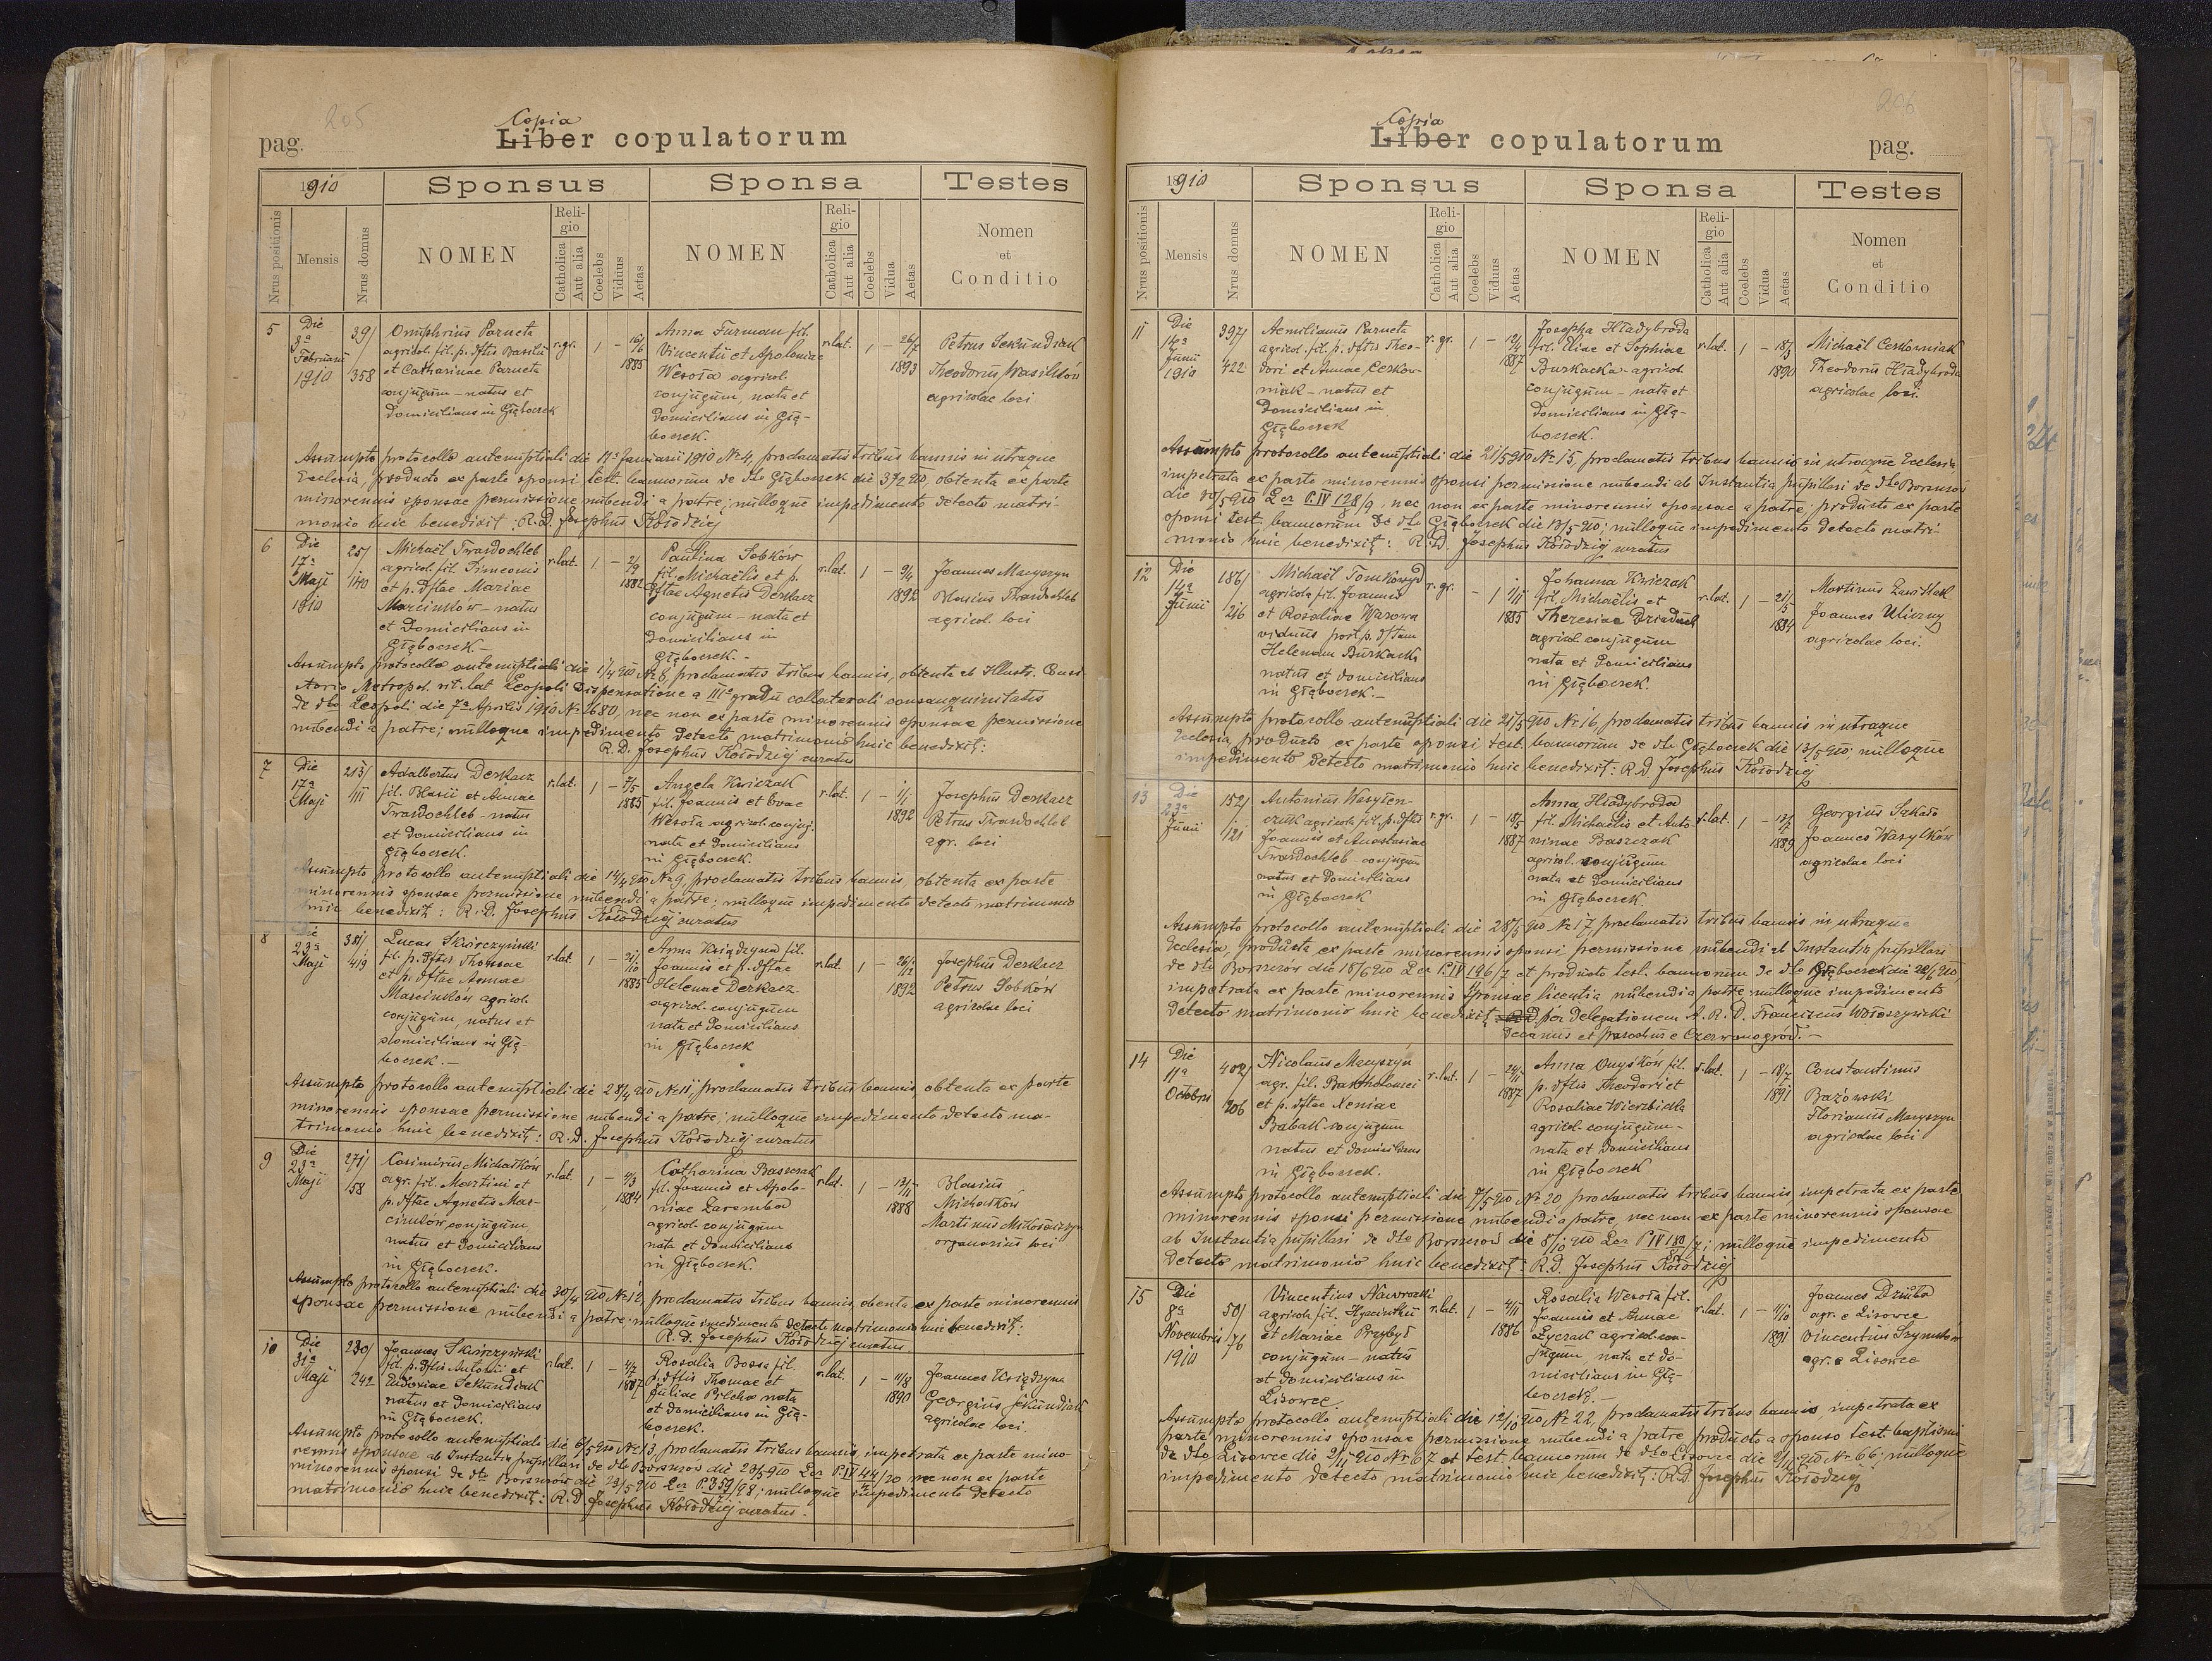 205
pag.
Copia
Liber copulatorum
1910
Sponsus
Sponsa
Testes
Nrus positionis
Mensis
Nrus domus
NOMEN
Religio
Catholica
Aut alia
Coelebs
Viduus
Aetas
NOMEN
Religio
Catholica
Aut alia
Coelebs
Vidua
Aetas
Nomen
et
Conditio
5
Die
3a
Februarii
1910
39/
358
Onuphrius Parneta
agricol. fil. p. dftis Basilii
et Catharinae Parneta
conjugum – natus et
domicilians in Głęboczek
r.gr. 1 – 1885
Anna Furman fil.
Vincentii et Apoloniae
Wesoła agricol.
conjugum, nata et
domicilians in Głę-
boczek.
r.lat. 1 – 26/7 1893
Petrus Sekundiak
Theodorus Wasylków
agricolae loci
Assumpto protocollo antenuptiali die 17a Januarii 1910 No 4, proclamatis tribus bannis in utraque
Ecclesia, producto ex parte sponsi test. bannorum de dto Głęboczek die 3/2 910, obtenta ex parte
minorennis sponsae permissione nubendi a patre; nulloque impedimento detecto matri-
monio huic benedixit: R.D. Josephus Kołodziej
6
Die
17a
Maji
1910
25/
140
Michaël Twardochleb
agricol. fil. Simeonis
et p. dftae Mariae
Marcinków – natus
et domicilians in
Głęboczek –
r.lat. 1 – 2/9 1882
Paulina Sobków
fil. Michaëlis et p.
dftae Agnetis Derkacz
conjugum – nata et
domicilians in
Głęboczek. –
r.lat. 1 – 9/4 1892
Joannes Maryszyn
Blasius Twardochleb
agricol. loci
Assumpto protocollo antenuptiali die 1/4 910 No 8, proclamatis tribus bannis, obtenta ab Illustr. Consi-
storio Metropol. rit. lat Leopoli dispensatione a IIIo gradu collaterali consanguinitatis
de dto Leopoli die 7a Aprilis 1910 No 1680, nec non ex parte minorennis sponsae permissione
nubendi a patre; nulloque impedimento detecto matrimonio huic benedixit:
R.D. Josephus Kołodziej curatus
7
Die
17a
Maji
213/
111
Adalbertus Derkacz
fil. Blasii et Annae
Twardochleb – natus
et domicilians in
Głęboczek.
r.lat. 1 – 7/5 1885
Angela Kwiczak
fil. Joannis et Evae
Wesoła agricol. conjug.
nata et domicilians
in Głęboczek.
r.lat. 1 – 1/1 1892
Josephus Derkacz
Petrus Twardochleb
agr. loci
Assumpto protocollo antenuptiali die 14/4 910 No 9, proclamatis tribus bannis, obtenta ex parte
minorennis sponsae permissione nubendi a patre; nulloque impedimento detecto matrimonio
huic benedixit: R.D. Josephus Kołodziej curatus
8
Die
23a
Maji
381/
419
Lucas Skwirczyński
fil. p. dftis Thomae
et p. dftae Annae
Marcinków agricol.
conjugum, natus et
domicilians in Głę-
boczek. –
r.lat. 1 – 21/10 1885
Anna Książdzyna fil.
Joannis et p. dftae
Helenae Derkacz
agricol. conjugum
nata et domicilians
in Głęboczek
r.lat. 1 – 26/12 1892
Josephus Derkacz
Petrus Sobków
agricolae loci
Assumpto protocollo antenuptiali die 28/4 910 No 11, proclamatis tribus bannis, obtenta ex parte
minorennis sponsae permissione nubendi a patre; nulloque impedimento detecto ma-
trimonio huic benedixit: R.D. Josephus Kołodziej curatus
9
Die
23a
Maji
271/
158
Casimirus Michałków
agr. fil. Martini et
p. dftae Agnetis Mar-
cinków conjugum,
natus et domicilians
in Głęboczek.
r.lat. 1 – 4/3 1884
Catharina Baszczak
fil. Joannis et Apolo-
niae Zaremba
agricol. conjugum
nata et domicilians
in Głęboczek.
r.lat. 1 – 1888
Blasius
Michałków
Martinus
organarius loci
Assumpto protocollo antenuptiali die 30/4 910 No 12, proclamatis tribus bannis, obtenta ex parte minorennis
sponsae permissione nubendi a patre; nulloque impedimento detecto matrimonio huic benedixit:
R.D. Josephus Kołodziej curatus
10
Die
31a
Maji
230/
242
Joannes Skwirczyński
fil. p. dftis Antonii et
Eudoxiae Sekundiak
natus et domicilians
in Głęboczek.
r.lat. 1 – 4/7 1887
Rosalia Bossa fil.
p. dftis Thomae et
Juliae Pilcha nata
et domicilians in Głę-
boczek.
r.lat. 1 – 11/8 1890
Joannes Książdzyna
Georgius Sekundiak
agricolae loci.
Assumpto protocollo antenuptiali die 6/5 910 No 13, proclamatis tribus bannis, impetrata ex parte mino-
rennis sponsae ab Instantia pupillari de dto Borszczów die 23/5 910 Lcz P. IV 44/20 nec non ex parte
minorennis sponsi de dto Borszczów die 23/5 910 Lcz P. 359/98; nulloque impedimento detecto
matrimonio huic benedixit: R.D. Josephus Kołodziej curatus.
206
Copia
Liber copulatorum
pag.
1910
Sponsus
Sponsa
Testes
Nrus positionis
Mensis
Nrus domus
NOMEN
Religio
Catholica
Aut alia
Coelebs
Viduus
Aetas
NOMEN
Religio
Catholica
Aut alia
Coelebs
Vidua
Aetas
Nomen
et
Conditio
11
Die
14a
Junii
1910
397/
422
Aemilianus Parneta
agricol. fil. p. dftis Theo-
dori et Annae Cerkow-
niak – natus et
domicilians in
Głęboczek
r.gr. 1 – 1887
Josepha Hładybroda
fil. Eliae et Sophiae
Burkacka – agricol.
conjugum – nata et
domicilians in Głę-
boczek.
r.lat. 1 – 18/3 1890
Michaël Cerkowniak
Theodorus Hładybroda
agricolae loci.
Assumpto protocollo antenuptiali die 21/5 910 No 15, proclamatis tribus bannis in utraque Ecclesia,
impetrata ex parte minorennis sponsi permissione nubendi ab Instantia pupillari de dto Borszczów
die 10/5 910 Lcz P. IV 128/9, nec non ex parte minorennis sponsae a patre, producto ex parte
sponsi test. bannorum de dto Głęboczek die 13/5 910; nulloque impedimento detecto matri-
monio huic benedixit: R.D. Josephus Kołodziej curatus
12
Die
14a
Junii
186/
216
Michaël Tomkowyd
agricola fil. Joannis
et Rosaliae Warowa
viduus post p. dftam
Helenam Burkacka
natus et domicilians
in Głęboczek. –
r.gr. – 1 1885
Johanna Kwiczak
fil. Michaëlis et
Theresiae Dziaduch
agricol. conjugum
nata et domicilians
in Głęboczek.
r.lat. 1 – 21/5 1884
Martinus Zawiślak
Joannes Uliczny
agricolae loci.
Assumpto protocollo antenuptiali die 21/5 910 Nr 16, proclamatis tribus bannis in utraque
Ecclesia, producto ex parte sponsi test. bannorum de dto Głęboczek die 13/5 910; nulloque
impedimento detecto matrimonio huic benedixit: R.D. Josephus Kołodziej
13
Die
23a
Junii
152/
121
Antonius Wasylen-
czuk agricola fil. p. dftis
Joannis et Anastasiae
Twardochleb – conjugum
natus et domicilians
in Głęboczek
r.gr. 1 – 18/5 1887
Anna Hładybroda
fil. Michaëlis et Anto-
ninae Baszczak
agricol. conjugum
nata et domicilians
in Głęboczek.
r.lat. 1 – 1889
Georgius Sąkało
Joannes Wasylków
agricolae loci
Assumpto protocollo antenuptiali die 28/5 910 No 17, proclamatis tribus bannis in utraque
Ecclesia, producta ex parte minorennis sponsi permissione nubendi ab Instantia pupillari
de dto Borszczów die 18/6 910 Lcz P. IV 196/7 et producto test. bannorum de dto Głęboczek die 22/6 910,
impetrata ex parte minorennis sponsae licentia nubendi a patre, nulloque impedimento
detecto matrimonio huic benedixit per delegationem A.R.D. Franciscus Wołoszyński
Decanus et parochus e Czerwonogród. –
14
Die
11a
Octobri
402/
206
Nicolaus Maryszyn
agr. fil. Bartholomei
et p. dftae Xeniae
Babak conjugum
natus et domicilians
in Głęboczek.
r.lat. 1 – 1887
Anna Onyśków fil.
p. dftis Theodori et
Rosaliae Wierzbicka
agricol. conjugum –
nata et domicilians
in Głęboczek
r.lat. 1 – 18/7 1891
Constantinus
Bażowski
Florianus Maryszyn
agricolae loci
Assumpto protocollo antenuptiali die 7/5 910 No 20 proclamatis tribus bannis impetrata ex parte
minorennis sponsi permissione nubendi a patre, nec non ex parte minorennis sponsae
ab Instantia pupillari de dto Borszczów die 8/10 910 Lcz P IV; nulloque impedimento
detecto matrimonio huic benedixit: R.D. Josephus Kołodziej
15
Die
8a
Novembris
1910
50/
76
Vincentius Nawrocki
agricola fil. Hyacinthii
et Mariae Przybył
conjugum – natus
et domicilians in
Lisowce.
r.lat. 1 – 4/11 1886
Rosalia Wesoła fil.
Joannis et Annae
Łyczak agricol. con-
jugum nata et do-
micilians in Głę-
boczek. –
r.lat. 1 – 4/10 1891
Joannes Dziuba
agr. e Lisowce
Vincentius Szymków
agr. e Lisowce
Assumpto protocollo antenuptiali die 12/10 910 No 22, proclamatis tribus bannis, impetrata ex
parte minorennis sponsae permissione nubendi a patre producto a sponso test. baptismi
de dto Lisowce die 2/11 910 No 67 et test. bannorum de dto Lisowce die 2/11 910 No 66; nulloque
impedimento detecto matrimonio huic benedixit: R.D. Josephus Kołodziej
275